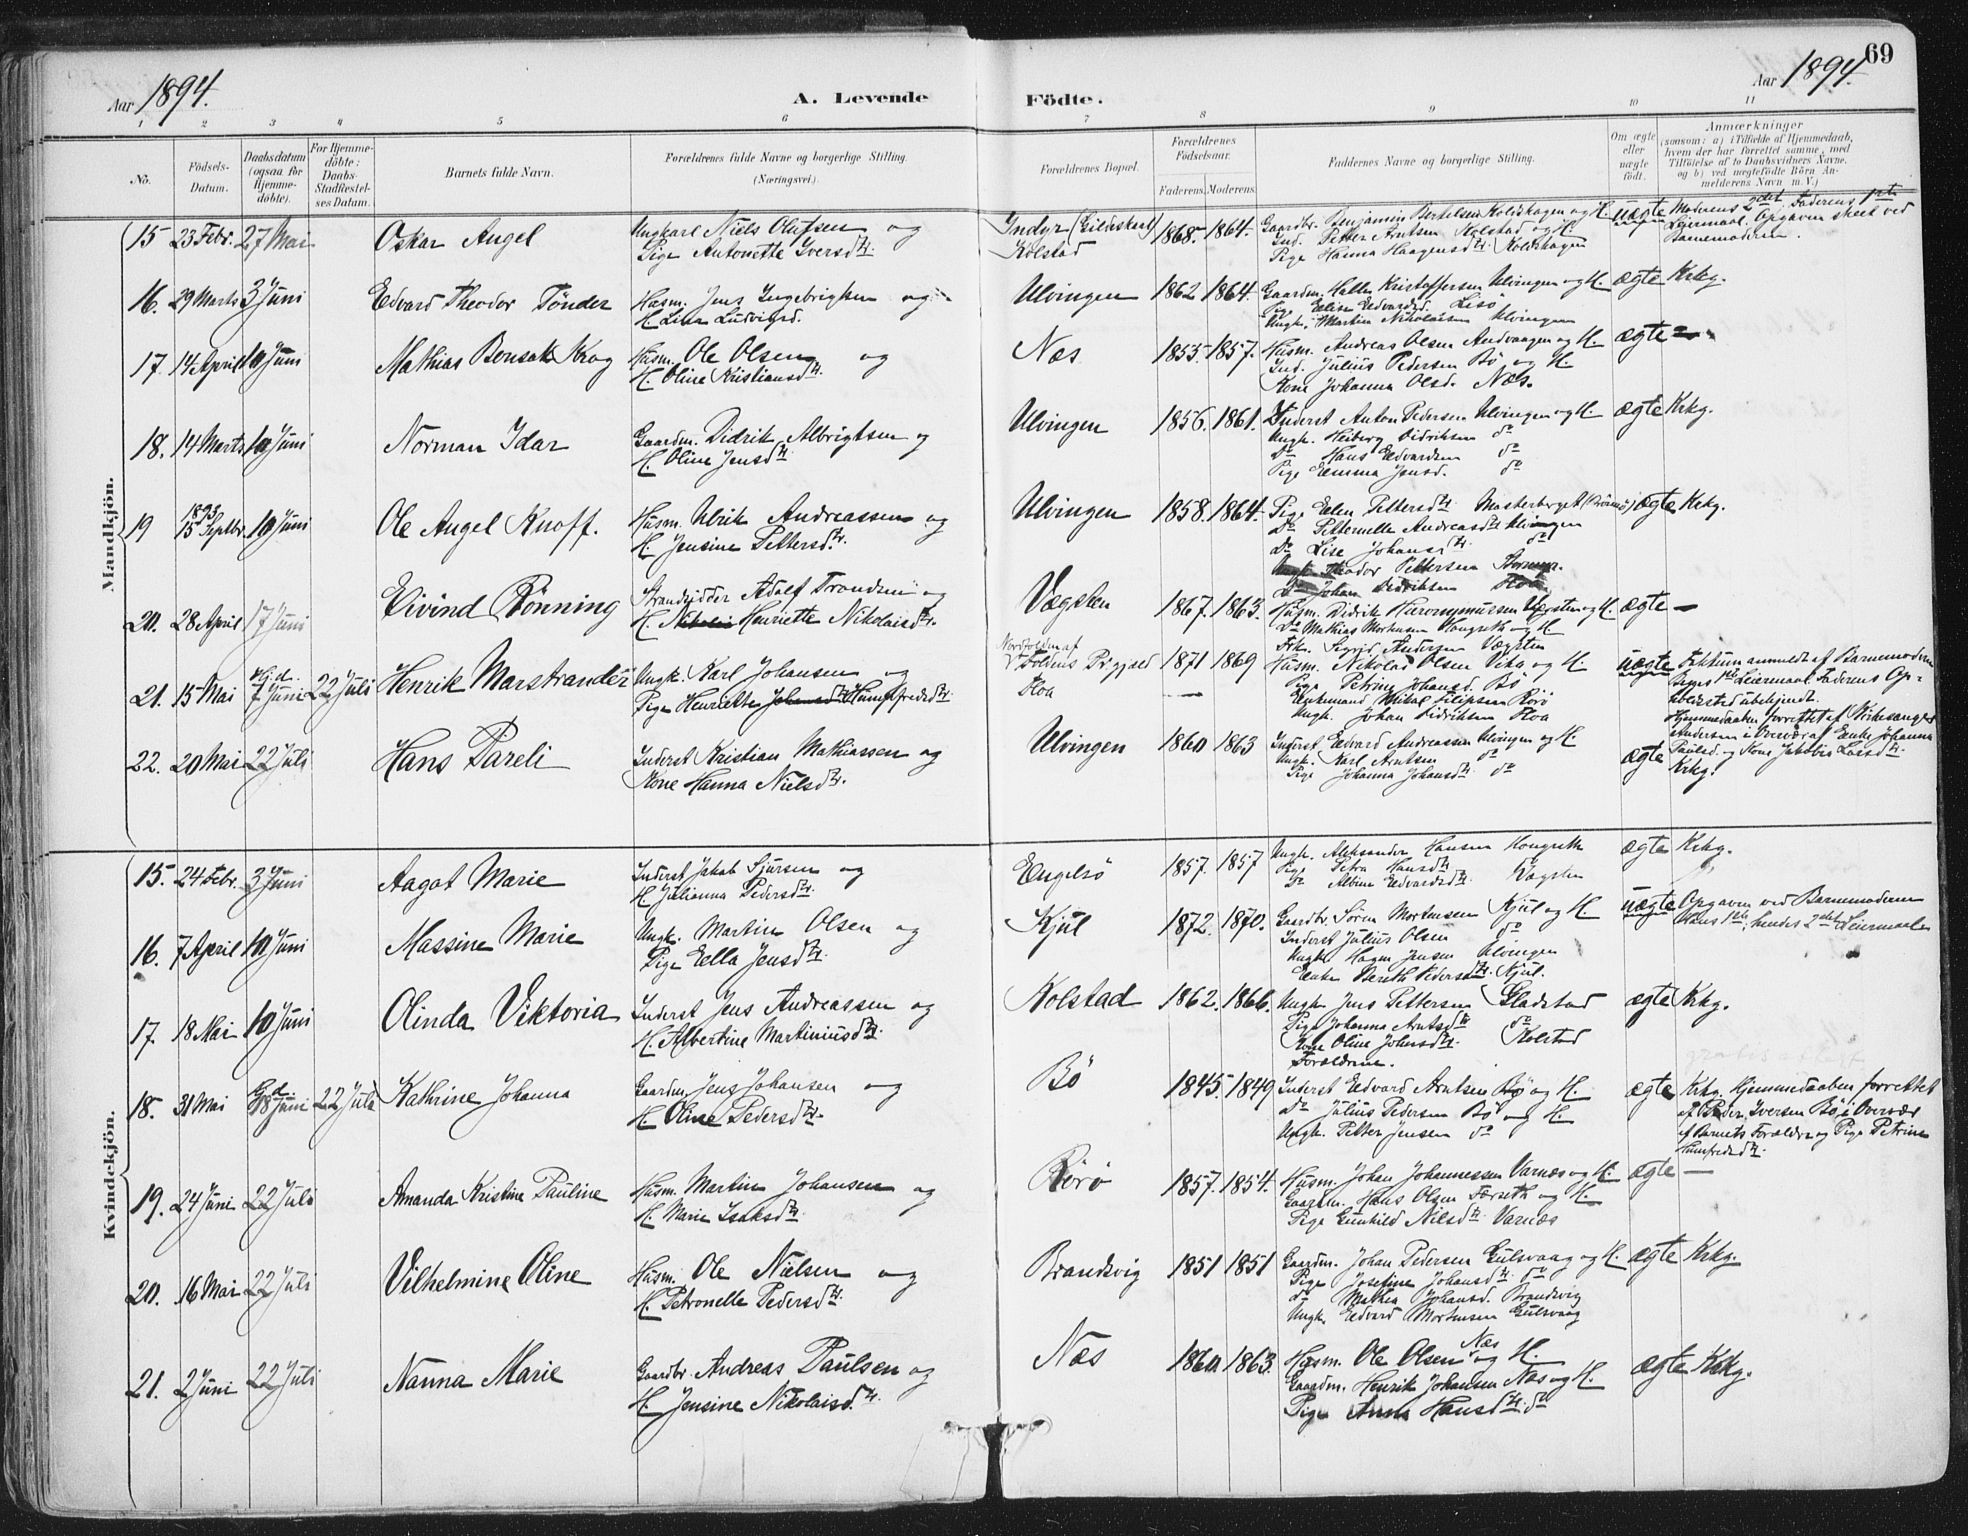 Aar 1894.
A. Levende Födte.
Aar 1894.
69
1 2 3 4 5 6 7 8 9 10 11
No.
Födsels-Datum.
Daabsdatum (ogsaa for Hjemme-döbte).
For Hjemme-döbte: Daabs-Stadfæstel-ses Datum.
Barnets fulde Navn.
Forældrenes fulde Navne og borgerlige Stilling.
(Næringsvei).
Forældrenes Bopæl.
Forældrenes Födselsaar.
Faderens. Moderens.
Faddernes Navne og borgerlige Stilling.
Om ægte eller uægte födt.
Anmærkninger
(saasom: a) i Tilfælde af Hjemmedaab,
hvem der har forrettet samme, med
Tilföielse af to Daabsvidners Navne.
og b) ved uægtefödte Börn An-
melderens Navn m. V.)
Mandkjön.
15 23 Febr. 27 Mai Oskar Angel
Ungkarl Niels Olufsen og
Pige Antonette Iversdtr.
Indyr (Gildeskaal)
Kolstad
1868. 1864.
Gaardbr. Benjamin Bertelsen Koldshagen og H.
Ind. Petter Arntsen Kolstad og H.
Pige Hanna Haagensdtr. Koldshagen
uægte
Moderens 2det, Faderens 1ste
Leiermaal. Opgaven skeet ved
Barnemoderen.
16. 29 Marts 3 Juni Edvard Theodor Tönder
Husm. Jens Ingebrigtsen og
H. Lina Ludvigsd.
Ulvingen 1862 1864.
Gaardm. Kristoffersen Ulvingen og H.
Pige Elise Edvardsd. Lisö
Ungk. Martin Nikolaisen Ulvingen
ægte Krkg.
17. 14 April 10 Juni Mathias Bonsak Krog
Husm. Ole Olsen og
H. Oline Kristiansdtr.
Næs 1855. 1857.
Husm. Andreas Olsen Andvaagen og H.
Ind. Julius Pedersen Bö og H.
Kone Johanna Olsd. Næs.
ægte —
18. 14 Marts 10 Juni Norman Idar
Gaardm. Didrik Albrigtsen og
H. Oline Jensdtr.
Ulvingen 1856. 1861.
Inderst Anton Pedersen Ulvingen og H.
Ungk. Heiberg Didriksen do
Do Hans Edvardsen do
Pige Emma Jensd. do
ægte Krkg.
19 1893 15 Septbr. 10 Juni Ole Angel Knoff.
Husm. Ulrik Andreassen og
H. Jensine Pettersdtr.
Ulvingen 1858. 1864.
Pige Elen Pettersdtr. Masterberget (Brönnö)
Do Petternelle Andreasdtr. Ulvingen
Do Lise Johansdtr. do
Ungk. Theodor Pettersen
Do Johan Didriksen Floa
ægte Krkg.
20. 28 April 17 Juni Eivind Rönning
Strandsidder Adolf Trondsen og
H. Henriette Nikolaisdtr.
Vægsten 1867. 1863.
Husm. Didrik Hieronymussen Vægsten og H.
Do Mathias Mortensen Hongseth og H.
Frk. Sigrid Andersen Vægsten
ægte —
21. 15 Mai Hj.d. 7 Juni 22 Juli Henrik Marstrander
Ungk. Karl Johansen og
Pige Henriette Johansdtr. Humfredsdtr.
Nordfolden af
Foldens Prgjæld
Floa
1871 1869
Husm. Nikolai Olsen Vika og H.
Pige Petrine Johansd. Bö
Enkemand Mikal Filipsen Rörö
Ungk. Johan Didriksen Floa
uægte
Faktum anmeldt af Barnemoderen
Begges 1ste Leiermaal. Faderens Op-
holdssted ubekjendt.
Hjemmedaaben forrettet af Kirkesanger
Andersen i Overvær af Enke Johanna
Paulsd. og Kone Jakobia Larsdtr.
22. 20 Mai 22 Juli Hans Pareli
Inderst Kristian Mathiassen og
Kone Hanna Nielsdtr.
Ulvingen 1860 1863
Inderst Edvard Andreassen Ulvingen og H
Ungk. Karl Arntsen do
Pige Johanna Johansdtr. do
ægte Krkg.
Kvindekjön.
15. 24 Febr. 3 Juni Aagot Marie
Inderst Jakob Sjursen og
H. Julianna Pedersdtr.
Engelsö 1857. 1857
Ungk. Aleksander Hansen Hongseth
Pige Petra Hansdtr.
Do Albine Edvardsdtr. Vægsten
ægte Krkg.
16. 7 April 10 Juni Massine Marie
Ungk. Martin Olsen og
Pige Ella Jensdtr.
Kjul 1872. 1870.
Gaardbr. Sören Mortensen Kjul og H.
Inderst Julius Olsen do
Ungk. Hagen Jensen Ulvingen
Enke Bereth Pedersdtr. Kjul.
uægte
Opgaven ved Barnemoderen
Hans 1ste, hendes 2det Leiermaal
17. 18 Mai 10 Juni Olinda Viktoria
Inderst Jens Andreassen og
H. Albertine Martiniusdtr.
Kolstad 1862. 1866.
Ungk. Jens Pettersen Gladstad
Pige Johanna Arntsdtr. do
Kone Oline Johnsdtr. Kolstad
Forældrene.
ægte Krkg.
18. 31 Mai 18 Juni 22 Juli Kathrine Johanna
Gaardm. Jens Johansen og
H. Oline Pedersdtr.
Bö 1845. 1849
Inderst Edvard Arntsen Bö og H.
Do Julius Pedersen Bö og H.
Ungk. Petter Jensen do
ægte
Krkg. Hjemmedaaben forrettet
af Peder Iversen Bö i Overvær
af Barnets Forældre og Pige Petrine
Humfredsdtr.
19. 24 Juni 22 Juli Amanda Kristine Pauline
Husm. Martin Johansen og
H. Marie Isaksdtr.
Rörö 1857. 1854.
Husm. Johan Johannessen Varnæs og H.
Gaardm. Hans Olsen Færseth og H.
Pige Gunhild Nilsdtr. Varnæs
ægte —
20. 16 Mai 22 Juli Vilhelmine Oline
Husm. Ole Nielsen og
H. Petronelle Pedersdtr.
Brandsvig 1851 1851
Gaardm. Johan Pedersen Gulsvaag og H.
Pige Josefine Johansdtr. do
do Mathea Johansd. Brandsvig
Ungk. Edvard Mortensen Gulsvaag
ægte Krkg.
21. 2 Juni 22 Juli Nanna Marie
Gaardbr. Andreas Paulsen og
H. Jensine Nikolaisdtr.
Næs 1860. 1863.
Husm. Ole Olsen Næs og H.
Gaardm. Henrik Johansen Næs og H.
Pige Anna Hansdtr. do
ægte Krkg.